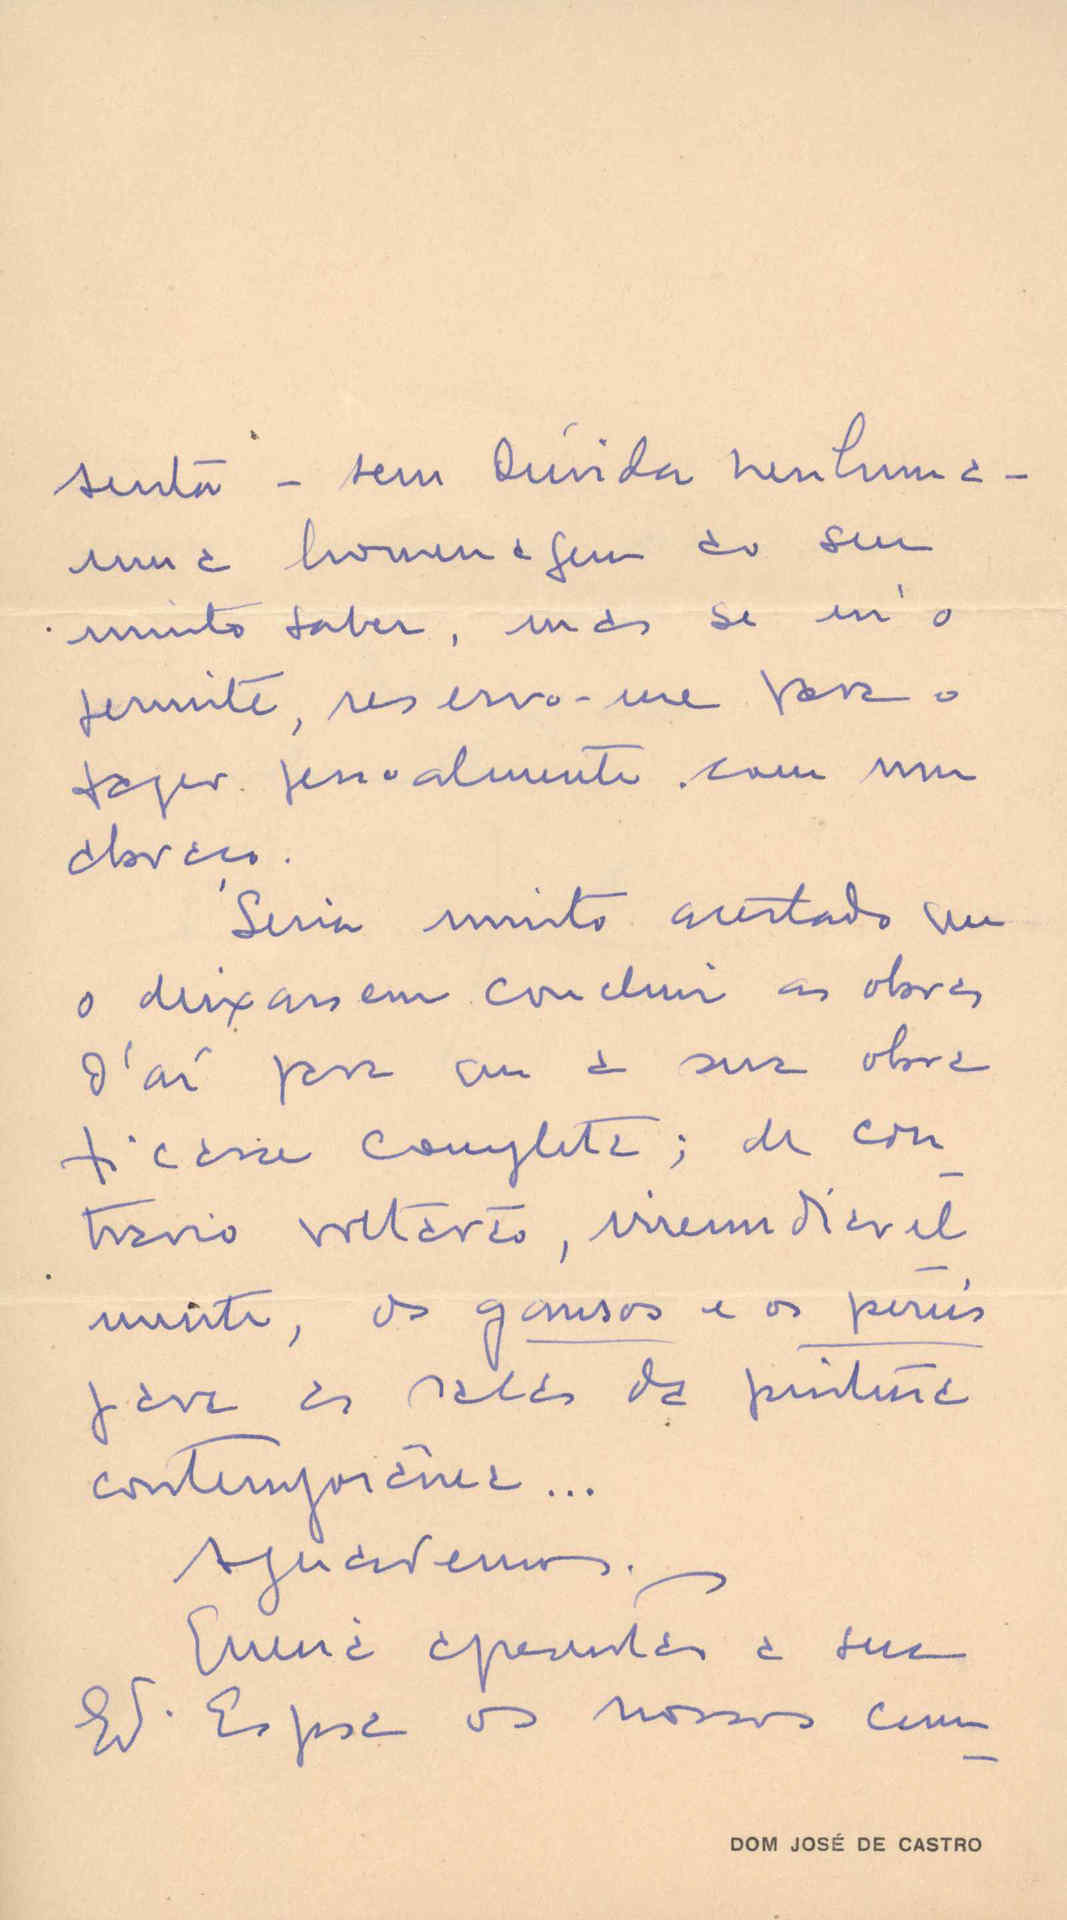 senta – sem dúvida nenhuma –
uma homenagem ao seu
muito saber, mas se m'o
permite, reservo-me para o
fazer pessoalmente com um
abraço.
Seria muito acertado que
o deixassem concluir as obras
d'aí para que a sua obra
ficasse completa; de con-
trario voltarão, irremediavel-
mente, os gansos e os perús
para as salas da pintura
contemporânea...
Aguardemos.
apresentar a sua
Espsa os nossos cum-
DOM JOSÉ DE CASTRO